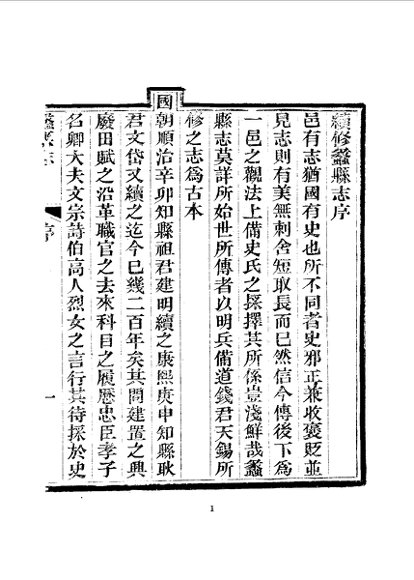 續修蠡縣志序
邑有志猶國有史也所不同者史邪正兼收褒貶並
見志則有美無刺舍短取長而已然信今傳後下為
一邑之觀法上備史氏之採擇其所係豈淺鮮哉蠡
縣志莫詳所始世所傳者以明兵備道錢君天錫所
修之志為古本
國朝順治辛卯知縣祖君建明續之康熙庚申知縣耿
君文岱又續之迄今已幾二百年矣其間建置之興
廢田賦之沿革職官之去來科目之履歷忠臣孝子
名卿大夫文宗詩伯高人烈女之言行其待採於史
序
一
1